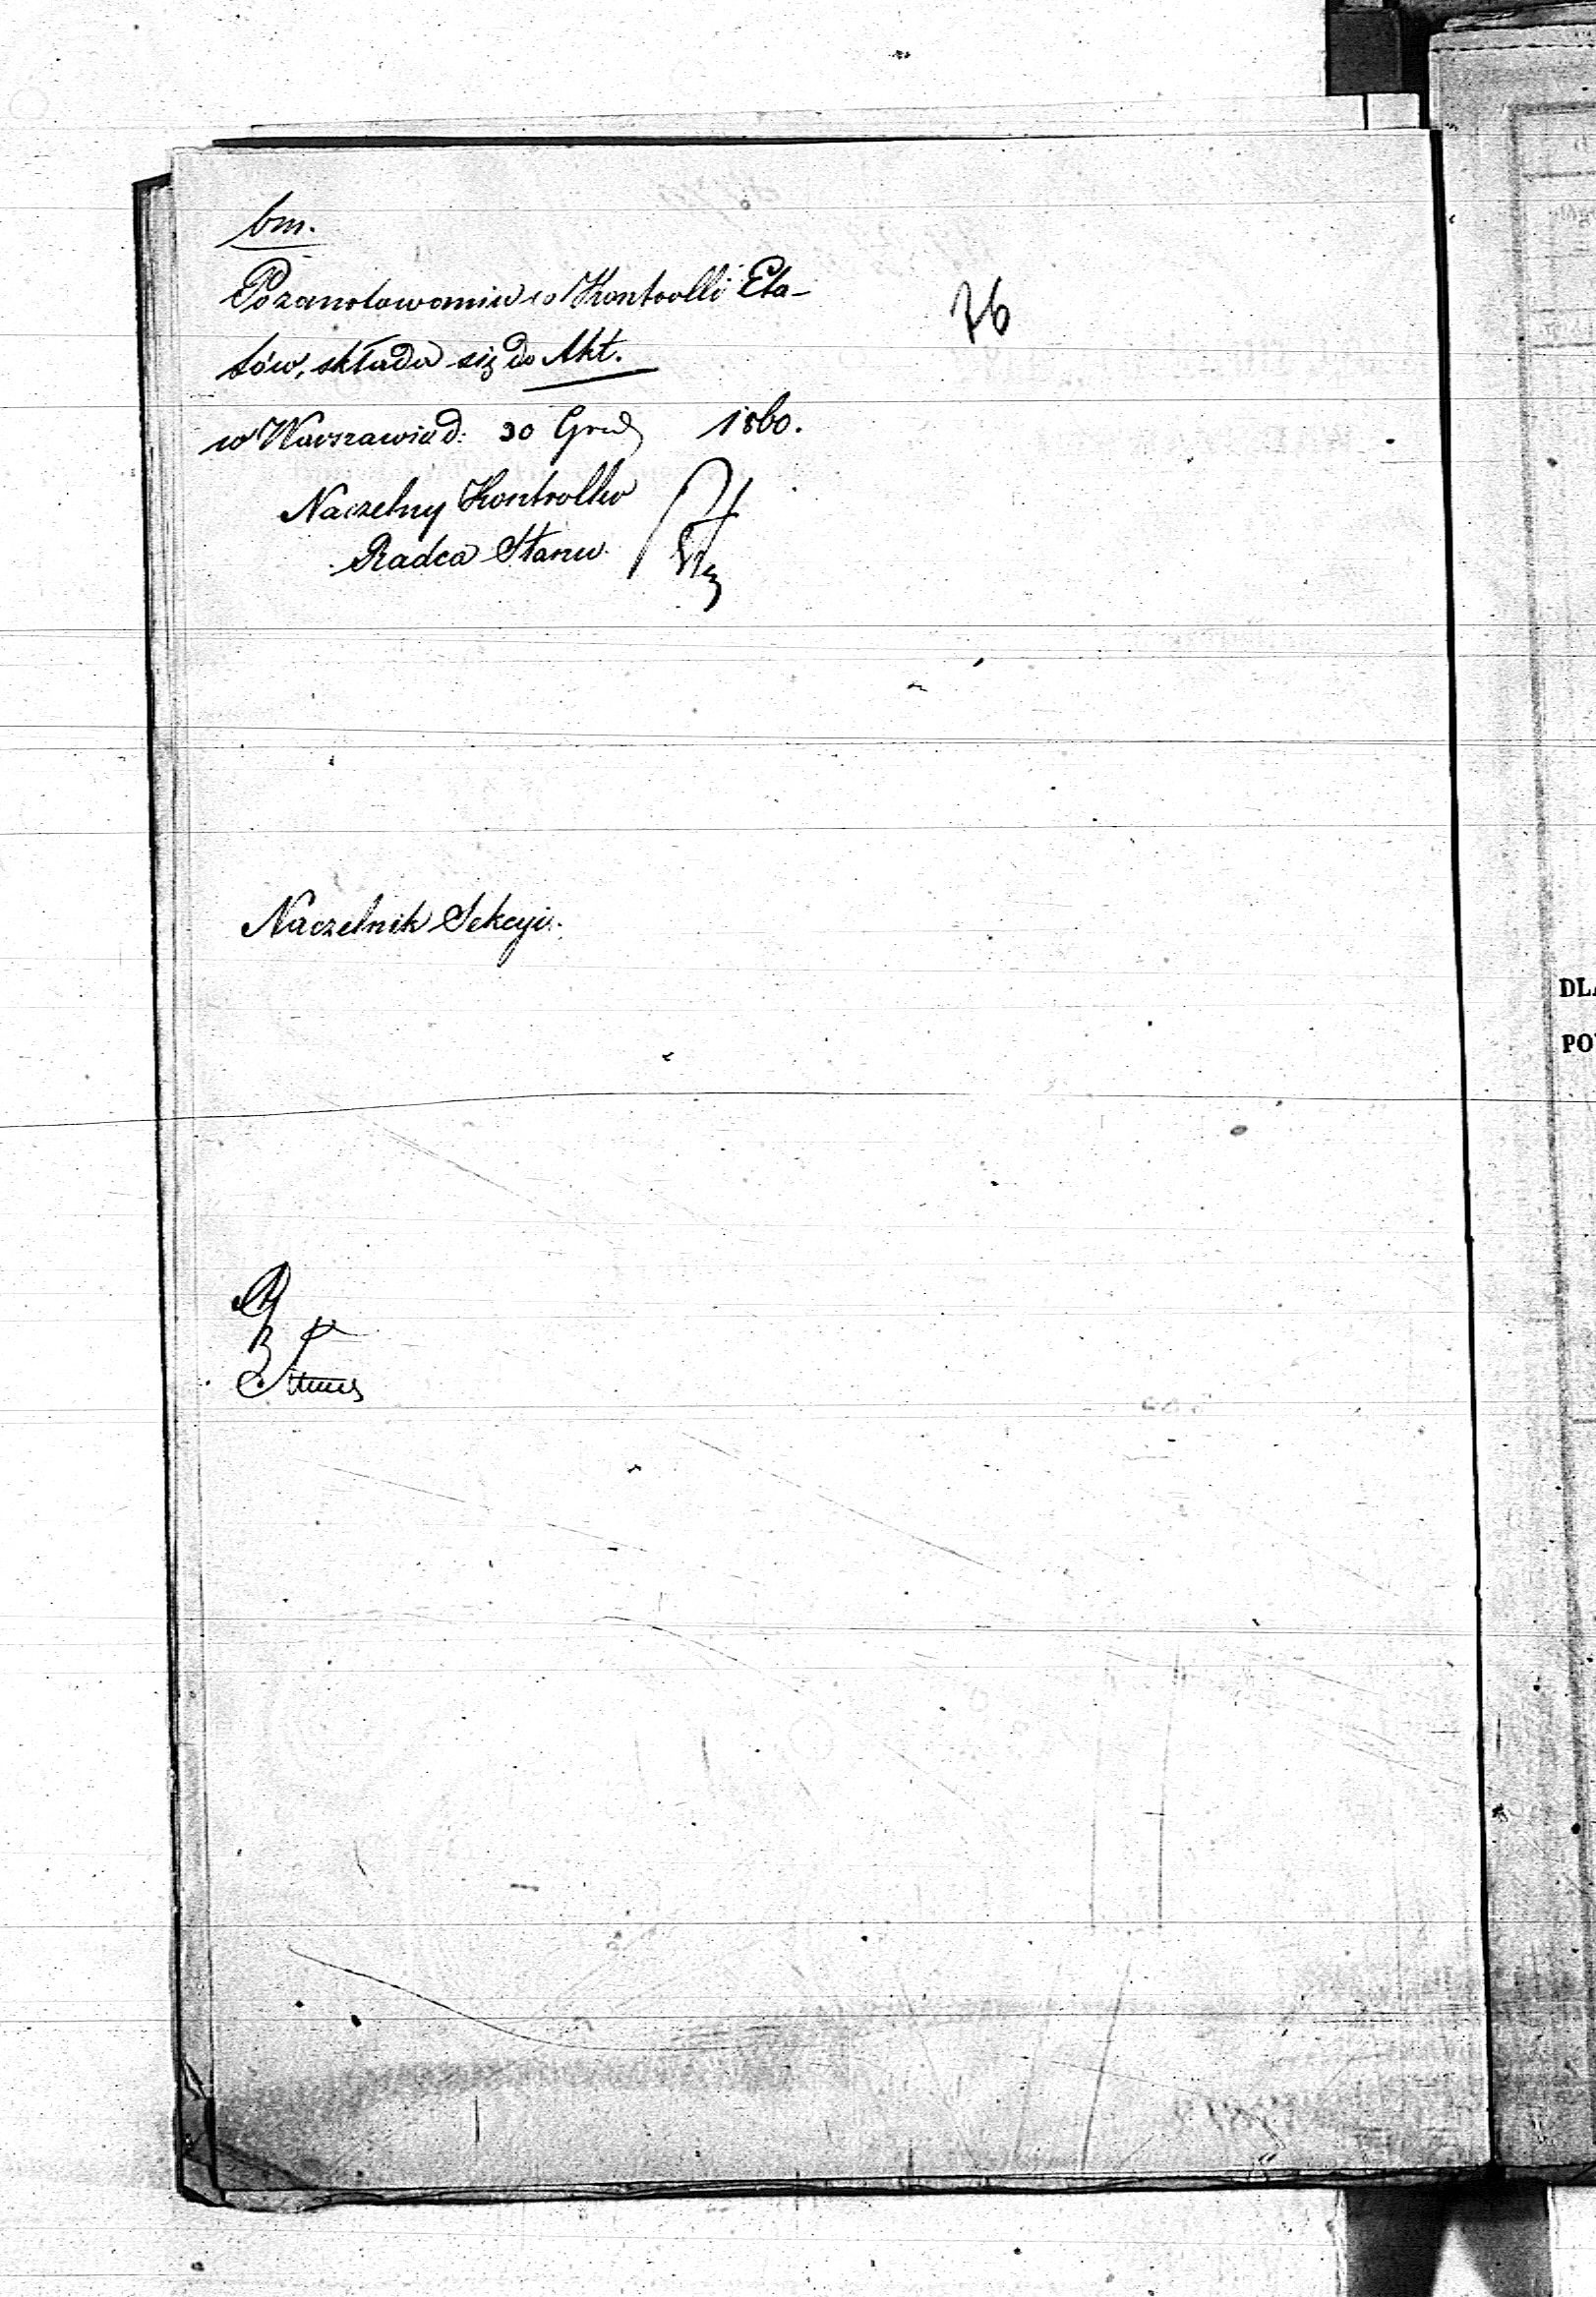 bm.
Po zanotowaniu w Kontrolli Eta-
tów, składa się do Akt.
76
w Warszawie d: 30 Grud 1860.
Naczelny Kontroller
Radca Stanu
Naczelnik Sekcyi.
DLA
PO